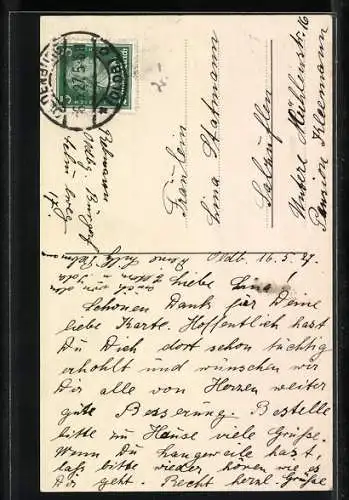 OLDENBURG
(OLDB)
Fräulein
Lina Stratmann
Salzuflen
Untere Mühlenstr. 16
Pension Kleemann
Oldbg. Bürgerf
Oldb. 16.5.27.
Liebe Lina!
Schönen Dank für Deine
liebe Karte. Hoffentlich hast
Du Dich dort schon tüchtig
erhohlt und wünschen wir
Dir alle von Herzen weiter
gute Besserung. Bestelle
bitte zu Hause viele Grüße.
Wenn Du Langeweile hast,
laß bitte wieder hören wie es
Dir geht. Recht herzl. Grüße